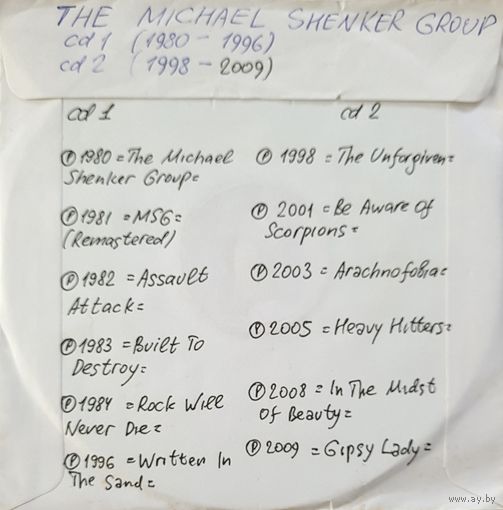 THE MICHAEL SHENKER GROUP
cd 1 (1980 - 1996)
cd 2 (1998 - 2009)
cd 1
Ⓟ 1980 = The Michael
Shenker Group =
Ⓟ 1981 = MSG =
(Remastered)
Ⓟ 1982 = Assault
Attack =
Ⓟ 1983 = Built To
Destroy =
Ⓟ 1984 = Rock Will
Never Die =
Ⓟ 1996 = Written In
The Sand =
cd 2
Ⓟ 1998 = The Unforgiven =
Ⓟ 2001 = Be Aware Of
Scorpions =
Ⓟ 2003 = Arachnofobia =
Ⓟ 2005 = Heavy Hitters =
Ⓟ 2008 = In The Midst
Of Beauty =
Ⓟ 2009 = Gipsy Lady =
www.ay.by